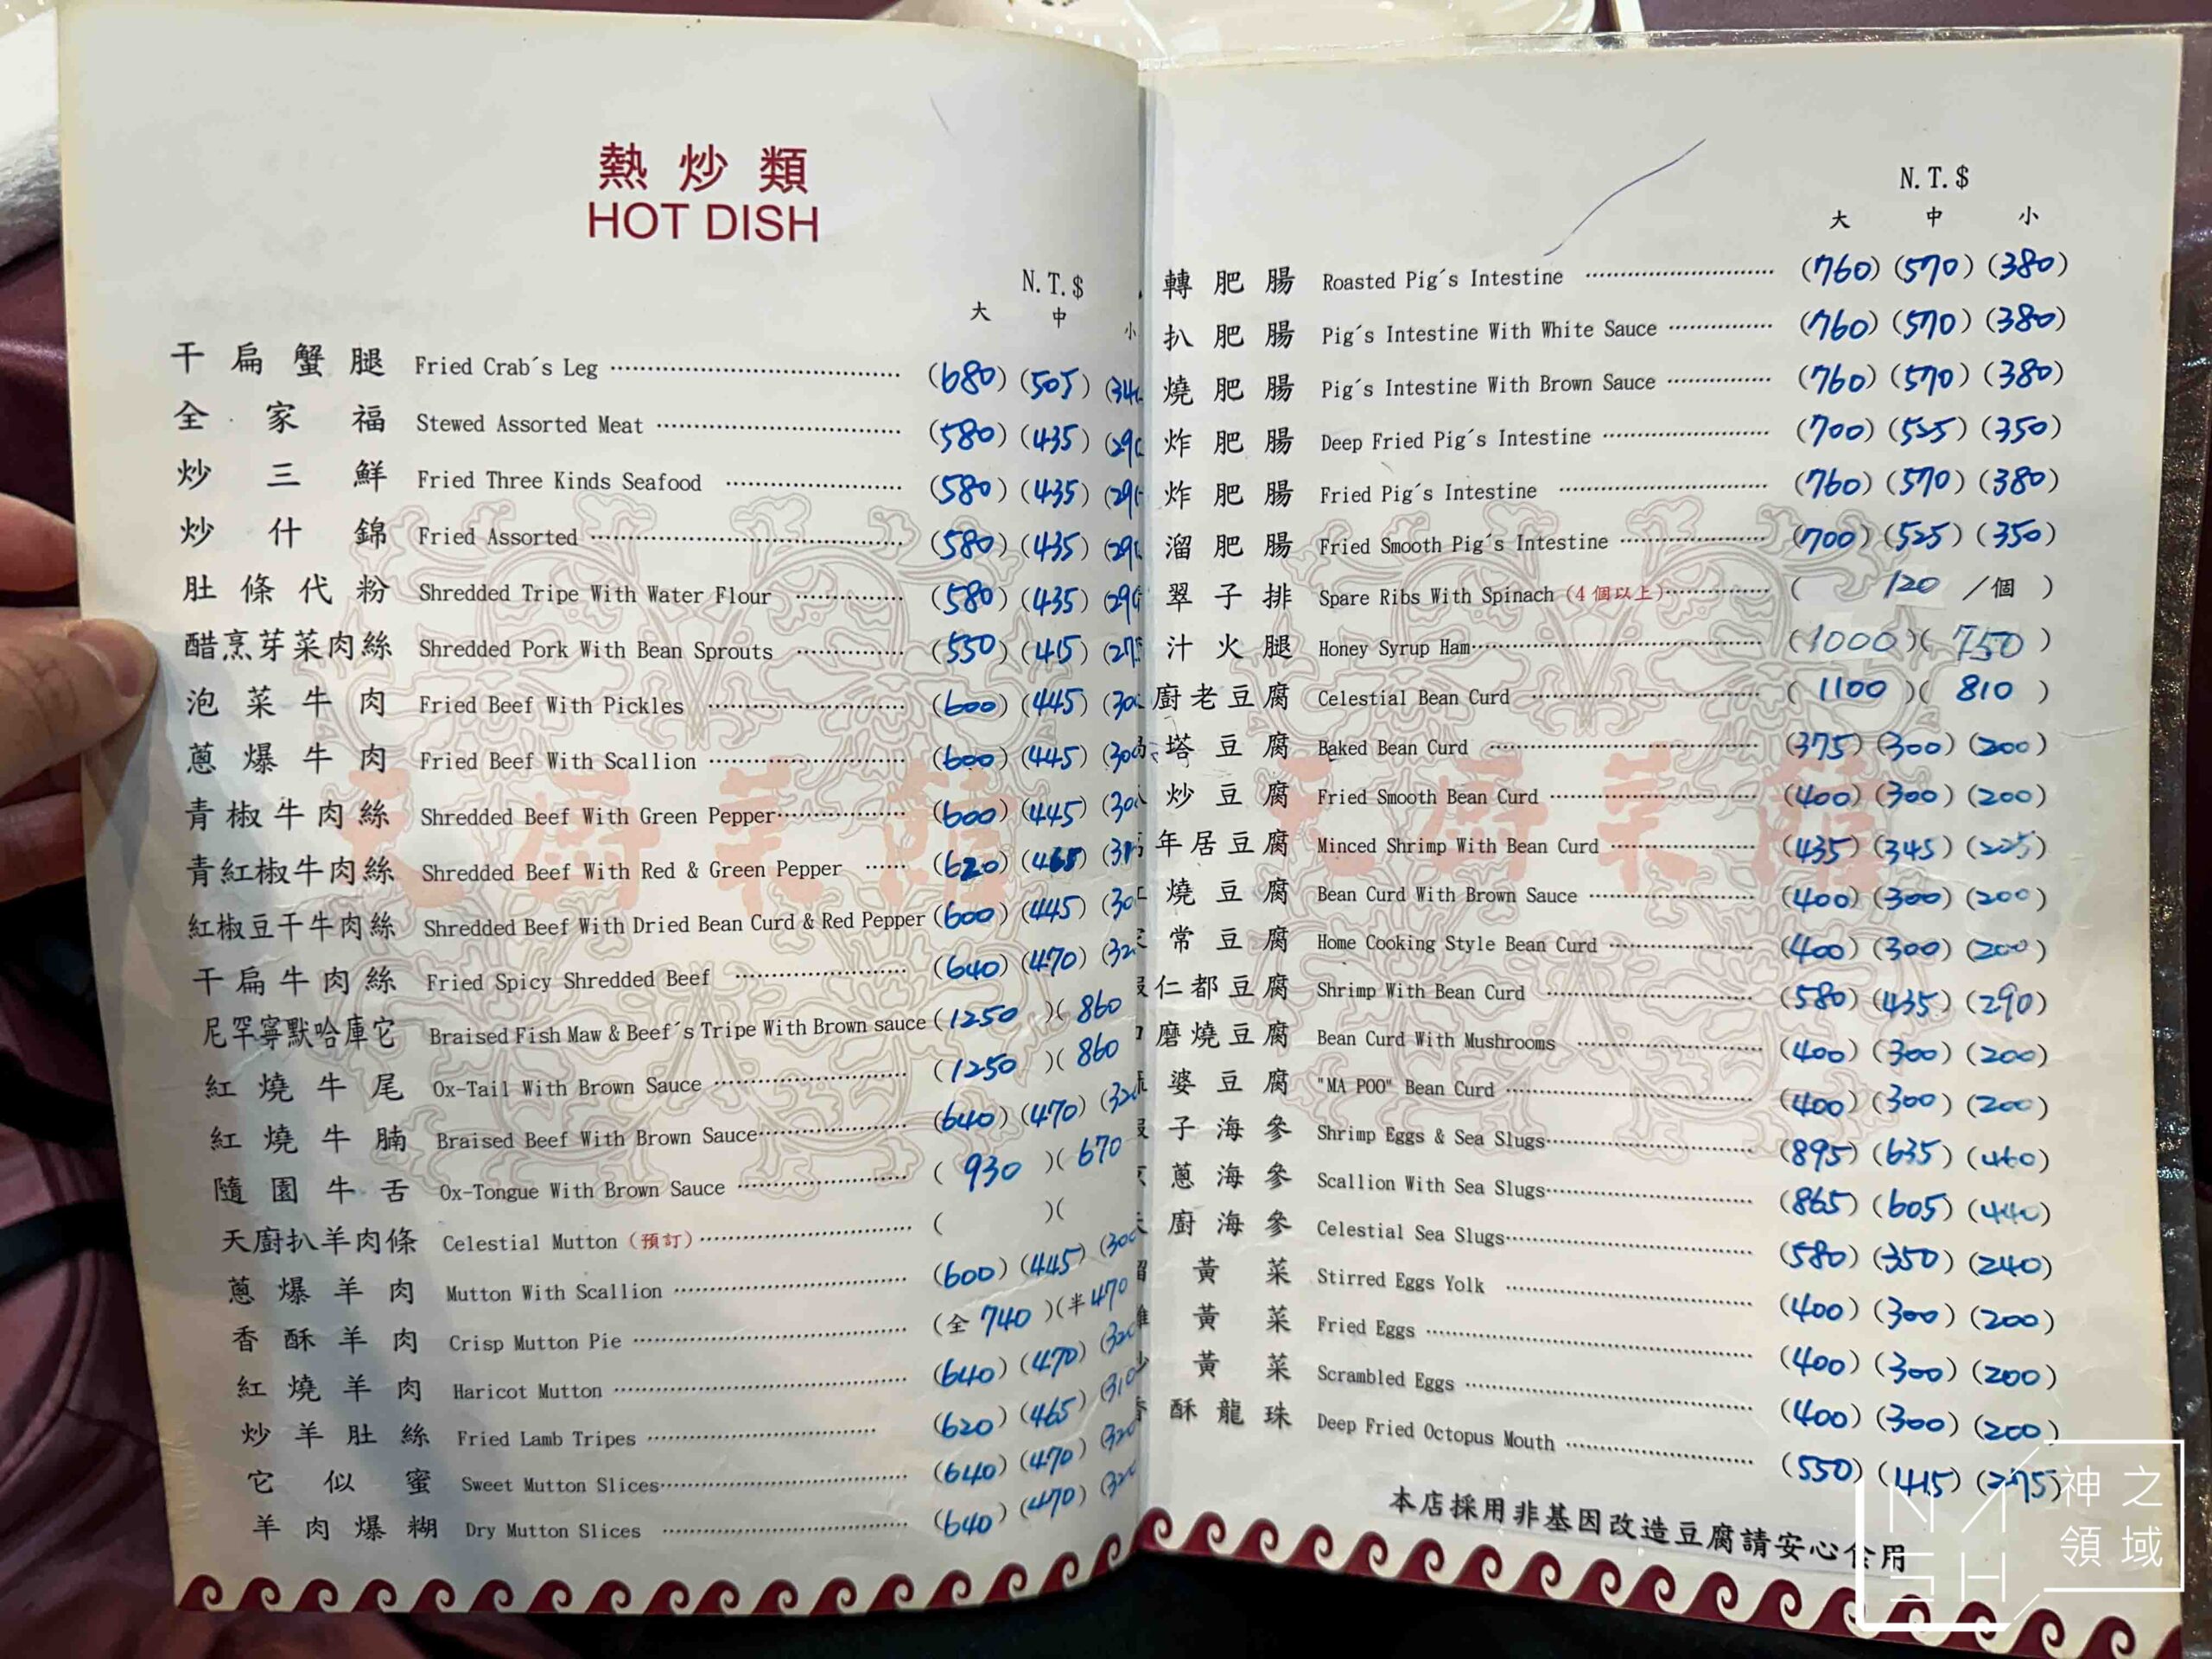 熱炒類
HOT DISH
N.T.$
大 中 小
干扁蟹腿 Fried Crab's Leg (680) (505) (34
全家福 Stewed Assorted Meat (580) (435) (29
炒三鮮 Fried Three Kinds Seafood (580) (435) (29
炒什錦 Fried Assorted (580) (435) (29
肚條代粉 Shredded Tripe With Water Flour (580) (435) (29
醋烹芽菜肉絲 Shredded Pork With Bean Sprouts (550) (415) (27
泡菜牛肉 Fried Beef With Pickles (600) (445) (30
蔥爆牛肉 Fried Beef With Scallion (600) (445) (30
青椒牛肉絲 Shredded Beef With Green Pepper (600) (445) (30
青紅椒牛肉絲 Shredded Beef With Red & Green Pepper (620) (465) (31
紅椒豆干牛肉絲 Shredded Beef With Dried Bean Curd & Red Pepper (600) (445) (30
干扁牛肉絲 Fried Spicy Shredded Beef (640) (470) (32
尼罕寧默哈庫它 Braised Fish Maw & Beef's Tripe With Brown sauce (1250 )( 860
紅燒牛尾 Ox-Tail With Brown Sauce (1250 )( 860
紅燒牛腩 Braised Beef With Brown Sauce (640) (470) (32
隨園牛舌 Ox-Tongue With Brown Sauce ( 930 )( 670
天廚扒羊肉條 Celestial Mutton (預訂) ( )(
蔥爆羊肉 Mutton With Scallion (600) (445) (30
香酥羊肉 Crisp Mutton Pie (全 740 )(半 470
紅燒羊肉 Haricot Mutton (640) (470) (320
炒羊肚絲 Fried Lamb Tripes (620) (465) (310
它似蜜 Sweet Mutton Slices (640) (470) (320
羊肉爆糊 Dry Mutton Slices (640) (470) (32
N.T.$
大 中 小
轉肥腸 Roasted Pig's Intestine (760) (570) (380)
扒肥腸 Pig's Intestine With White Sauce (760) (570) (380)
燒肥腸 Pig's Intestine With Brown Sauce (760) (570) (380)
炸肥腸 Deep Fried Pig's Intestine (700) (525) (350)
炸肥腸 Fried Pig's Intestine (760) (570) (380)
溜肥腸 Fried Smooth Pig's Intestine (700) (525) (350)
翠子排 Spare Ribs With Spinach (4個以上) ( 120 /個 )
汁火腿 Honey Syrup Ham (1000)( 750 )
廚老豆腐 Celestial Bean Curd ( 1100 )( 810 )
塔豆腐 Baked Bean Curd (375) (300) (200)
炒豆腐 Fried Smooth Bean Curd (400) (300) (200)
年居豆腐 Minced Shrimp With Bean Curd (435) (345) (225)
燒豆腐 Bean Curd With Brown Sauce (400) (300) (200)
常豆腐 Home Cooking Style Bean Curd (400) (300) (200)
仁都豆腐 Shrimp With Bean Curd (580) (435) (290)
磨燒豆腐 Bean Curd With Mushrooms (400) (300) (200)
婆豆腐 "MA POO" Bean Curd (400) (300) (200)
子海參 Shrimp Eggs & Sea Slugs (895) (635) (460)
蔥海參 Scallion With Sea Slugs (865) (605) (440)
廚海參 Celestial Sea Slugs (580) (350) (240)
黃菜 Stirred Eggs Yolk (400) (300) (200)
黃菜 Fried Eggs (400) (300) (200)
黃菜 Scrambled Eggs (400) (300) (200)
酥龍珠 Deep Fried Octopus Mouth (550) (415) (275)
本店採用非基因改造豆腐請安心食用
天廚菜館
天廚菜館
神之
領域